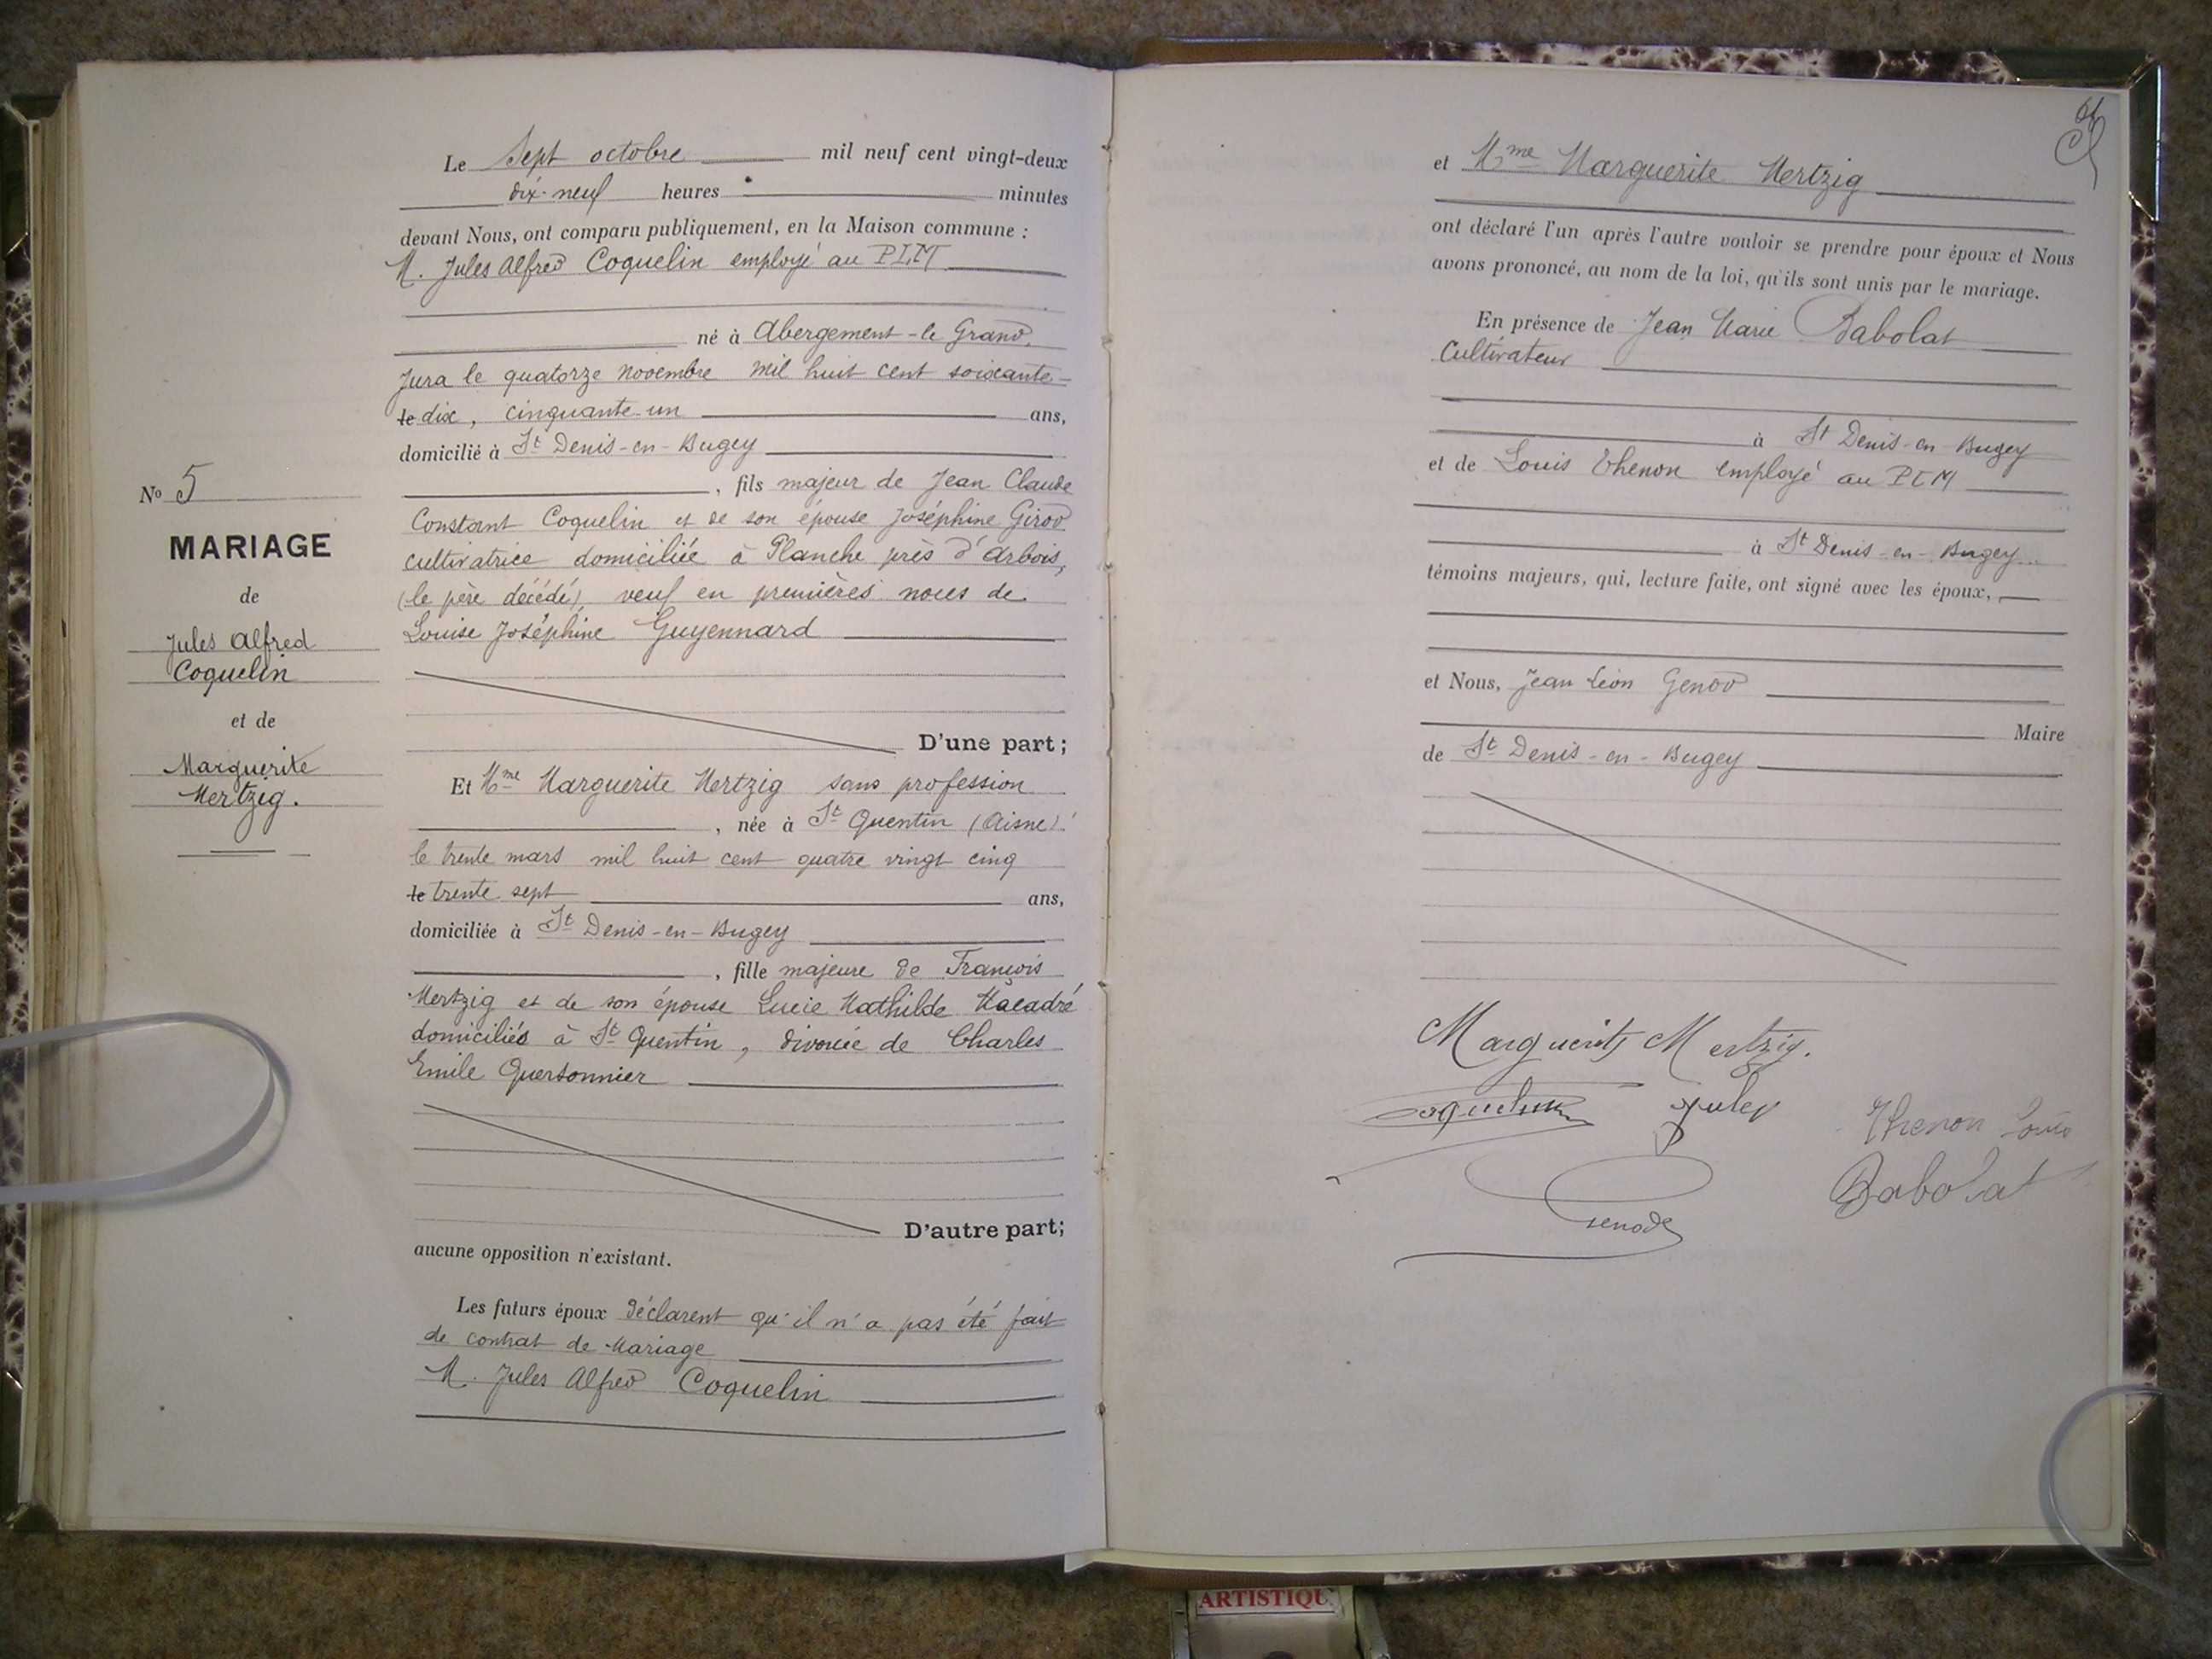 Le Sept octobre mil neuf cent vingt-deux
dix-neuf heures minutes
devant Nous, ont comparu publiquement, en la Maison commune :
M. Jules Alfred Coquelin employé au PLM
né à Abergement-le Grand,
Jura le quatorze novembre mil huit cent soixante-
le dix, cinquante-un ans,
domicilié à St Denis-en-Bugey
, fils majeur de Jean Claude
Constant Coquelin et de son épouse Joséphine Girod
cultivatrice domiciliée à Planche près d'Arbois,
(le père décédé), veuf en premières noces de
Louise Joséphine Guyennard
D'une part ;
Et Mme Marguerite Mertzig sans profession
, née à St Quentin (Aisne)
le trente mars mil huit cent quatre vingt cinq
le trente sept ans,
domiciliée à St Denis-en-Bugey
, fille majeure de François
Mertzig et de son épouse Lucie Mathilde Macadré
domiciliés à St Quentin, divorcée de Charles
Emile Quersonnier
D'autre part;
aucune opposition n'existant.
Les futurs époux déclarent qu'il n'a pas été fait
de contrat de Mariage
M. Jules Alfred Coquelin
No 5
MARIAGE
de
Jules Alfred
Coquelin
et de
Marguerite
Mertzig.
et Mme Marguerite Mertzig
ont déclaré l'un après l'autre vouloir se prendre pour époux et Nous
avons prononcé, au nom de la loi, qu'ils sont unis par le mariage.
En présence de Jean Marie Babolat
Cultivateur
à St Denis-en-Bugey
et de Louis Thenon employé au PLM
à St Denis-en-Bugey
témoins majeurs, qui, lecture faite, ont signé avec les époux,
et Nous, Jean Léon Genod
Maire
de St Denis-en-Bugey
Marguerite Mertzig.
Coquelin Jules
Thenon Louis
Babolat
Genod
ARTISTIQU